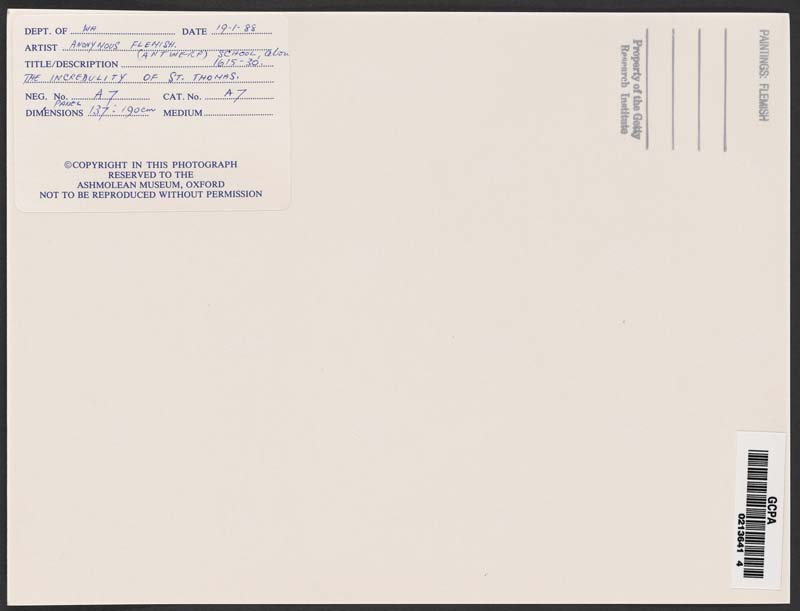 DEPT. OF WA DATE 19-1-88
ARTIST ANONYMOUS FLEMISH.
(ANTWERP) SCHOOL,
TITLE/DESCRIPTION 1615-30.
THE INCREDULITY OF ST. THOMAS.
NEG. No. A7 CAT. No. A7
PANEL
DIMENSIONS 137 : 190cm MEDIUM
©COPYRIGHT IN THIS PHOTOGRAPH
RESERVED TO THE
ASHMOLEAN MUSEUM, OXFORD
NOT TO BE REPRODUCED WITHOUT PERMISSION
Property of the Getty
Research Institute
PAINTINGS: FLEMISH
GCPA
0213641 4